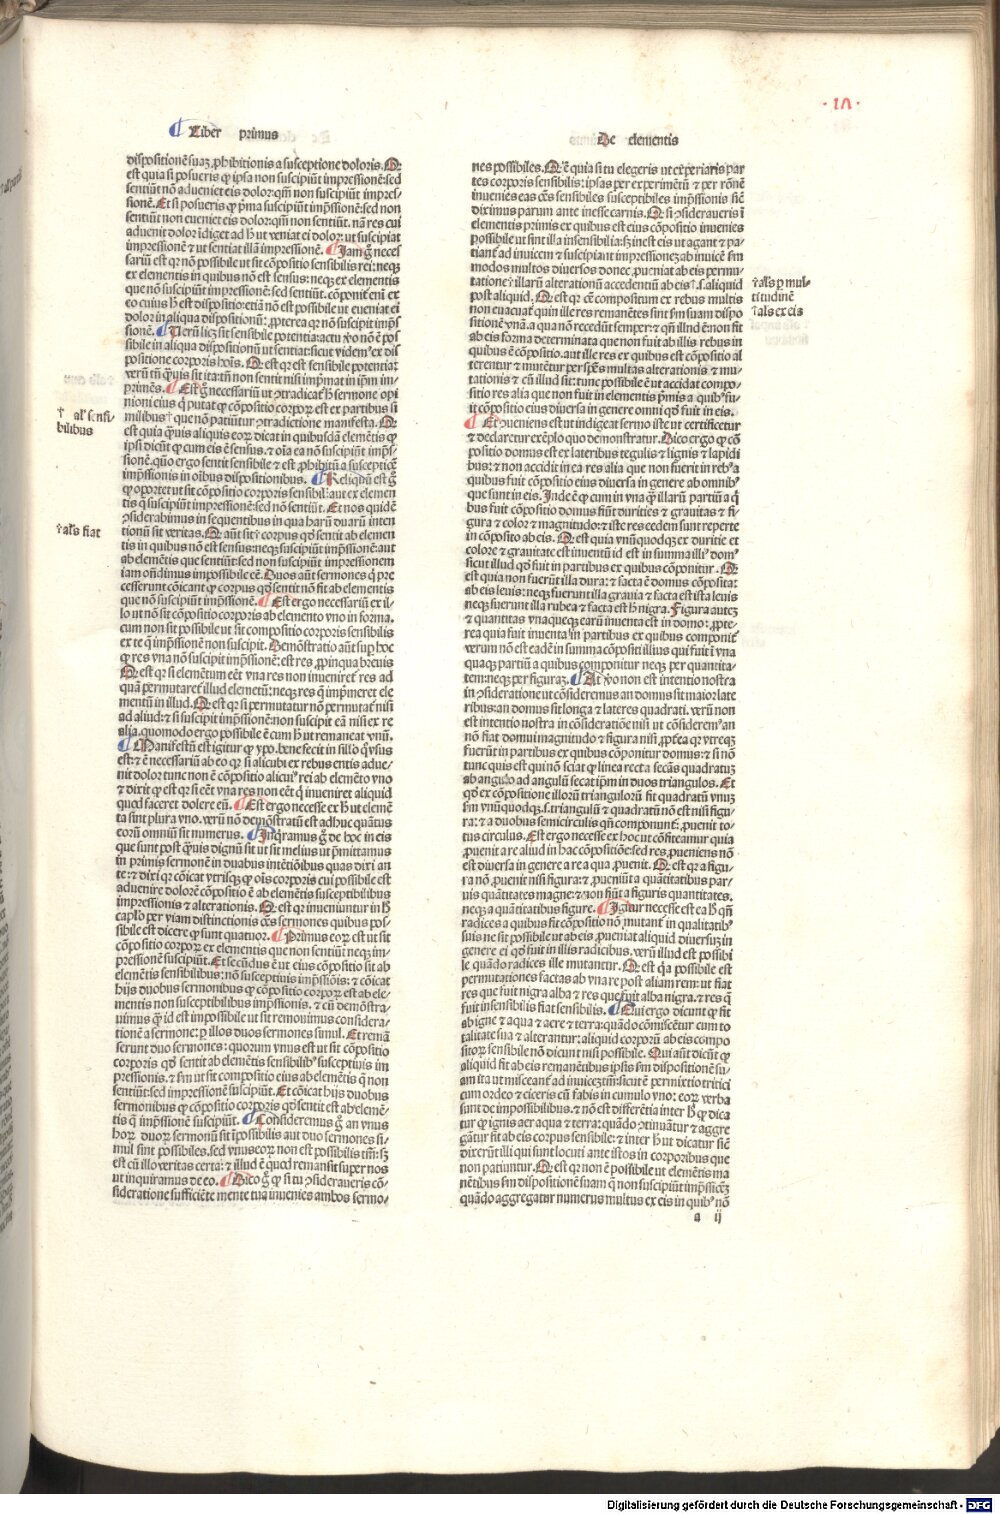 Liber primus
De elementis
dispositionē suaꝫ ꝓhibitionis a susceptione doloris. Q̄
est quia si posueris ꝙ ipsa non suscipiūt impressionē: sed
sentiūt nō adueniet eis dolor: qm̄ non suscipiūt impres-
sionē. Et si posueris ꝙ pͥma suscipiūt imp̄ssionē: sed non
sentiūt non eueniet eis dolor: qm̄ non sentiūt. nā res cui
aduenit dolor īdiget ad hͦ ut veniat ei dolor: ut suscipiat
impressionē ⁊ ut sentiat illā impressionē. Iam gͦ neces
sariū est qꝛ nō possibile ut sit cōpositio sensibilis rei: neqꝫ
ex elementis in quibus nō est sensus: neqꝫ ex elementis
que nō suscipiūt impressionē: sed sentiūt. cōponit̄ eni ex
eo cuius hͦ est dispositio: etiā nō est possibile ut eueniat ei
dolor in aliqua dispositionū: ꝓpterea qꝛ nō suscipit imp̄s
sionē. Uerū licꝫ sit sensibile potentia: actu v̄o nō ē pos
sibile in aliqua dispositionū ut sentiat: sicut videmꝰ ex dis
positione corporis hoīs. Q̄ est qꝛ est sensibile potentia:
verū tn̄ qͣuis sit ita: tn̄ non sentit nisi imp̄mat in ip̄m im-
primēs. Est gͦ necessariū ut ꝯtradicat hͦ sermone opi
nioni eius q̄ putat ꝙ cōpositio corpoꝝ est ex partibus si
milibus † que nō patiūt̄ ꝯtradictione manifesta. Q̄
est quia qͣuis aliquis eoꝝ dicat in quibusdā elemētis ꝙ
ipsi dicūt ꝙ cum eis ē sensus. ⁊ oīa ea nō suscipiūt imp̄s-
sionē. quō ergo sentit sensibile ⁊ est ꝓhibitū a susceptiōe
imp̄ssionis in oībus dispositionibus. Reliquū est gͦ
ꝙ oportet ut sit cōpositio corporis sensibil: aut ex elemen
tis q̄ suscipiūt impressionē: sed nō sentiūt. Et nos quidē
ꝯsiderabimus in sequentibus in qua harū duarū inten
tionū sit veritas. Q̄ aūt sit † corpus qd̄ sentit ab elemen
tis in quibus nō est sensus: neqꝫ suscipiūt imp̄ssionē: aut
ab elemētis que sentiūt: sed non suscipiūt impressionem
iam oñdimus impossibile eē. Duos aūt sermones q̄ pre
cesserunt cōicant ꝙ corpus qd̄ sentit nō fit ab elementis
que nō suscipiūt imp̄ssionē. Est ergo necessariū ex il-
lo ut nō sit cōpositio corporis ab elemento vno in forma.
cum non sit possibile ut sit compositio corporis sensibilis
ex re q̄ imp̄ssionē non suscipit. Demōstratio aūt suꝑ hͦ
ꝙ res vna nō suscipit imp̄ssionē: est res ꝓpinqua breuis
Q̄ est qꝛ si elemētum eēt vna res non inueniret̄ res ad
quā permutaret̄ illud elemētū: neqꝫ res q̄ imp̄meret ele
mentū in illud. Q̄ est qꝛ si permutatur nō permutat̄ nisi
ad aliud: ⁊ si suscipit imp̄ssionē: non suscipit eā nisi ex re
alia. quomodo ergo possibile ē cum hͦ ut remaneat vnū.
Manifestū est igitur ꝙ ypo. bene fecit in sillō q̄ vsus
est: ⁊ ē necessariū ab eo qꝛ si alicubi ex rebus entis adue-
nit dolor tunc non ē cōpositio alicuiꝰ rei ab elemēto vno
⁊ dixit ꝙ est qꝛ si eēt vna res non eēt q̄ inueniret aliquid
quod faceret dolere eū. Est ergo necesse ex hͦ ut elemē
ta sint plura vno. verū nō demōstratū est adhuc quātus
eorū omniū sit numerus. Inqͥramus gͦ de hoc in eis
que sunt post qͣuis dignū sit ut sit melius ut p̄mittamus
in primis sermonē in duabus intētiōibus quas dixi an
te: ⁊ dixi qꝛ cōicat vtrisqꝫ ꝙ oīs corporis cui possibile est
aduenire dolorē cōpositio ē ab elemētis susceptibilibus
impressionis ⁊ alterationis. Q̄ est qꝛ inueniuntur in hͦ
caplo per viam distinctionis oēs sermones quibus pos-
sibile est dicere ꝙ sunt quatuor. Primus eoꝝ est ut sit
cōpositio corpoꝝ ex elementis que non sentiūt neqꝫ im-
pressionē suscipiūt. Et secūdus ē ut eius cōpositio sit ab
elemētis sensibilibus: nō susceptiuis imp̄ssiōis: ⁊ cōicat
hijs duobus sermonibus ꝙ cōpositio corpoꝝ est ab ele-
mentis non susceptibilibus impressionis. ⁊ cū demōstra-
uimus ꝙ id est impossibile ut sit remouimus considera-
tionē a sermone: ꝑ illos duos sermones simul. Et remā
serunt duo sermones: quorum vnus est ut sit cōpositio
corporis qd̄ sentit ab elemētis sensibilibꝰ susceptiuis im
pressionis. ⁊ sm̄ ut sit compositio eius ab elemētis q̄ non
sentiūt: sed impressionē suscipiūt. Et cōicat hijs duobus
sermonibus ꝙ cōpositio corporis qd̄ sentit est ab elemē-
tis q̄ imp̄ssionē suscipiūt. Consideremus gͦ an vnus
hoꝝ duoꝝ sermonū sit īpossibilis aut duo sermones si-
mul sint possibiles. sed vnus eoꝝ non est possibilis tm̄: sꝫ
est cū illo veritas certa: ⁊ illud ē quod remansit super nos
ut inquiramus de eo. Dico gͦ ꝙ si tu ꝯsideraueris cō-
sideratione sufficiēte mente tua inuenies ambos sermo-
† al' sensi-
bilibus
† al's fiat
nes possibiles. Q̄ ē quia si tu elegeris ut experiaris par
tes corporis sensibilis: ipsas per experimētū ⁊ per rōnē
inuenies eas oēs sensibiles susceptibiles imp̄ssionis sic̄
diximus parum ante inesse carnis. Q̄ si ꝯsideraueris ī
elementis primis ex quibus est eius cōpositio inuenies
possibile ut sint illa insensibilia: sꝫ inest eis ut agant ⁊ pa-
tiant̄ ad inuicem ⁊ suscipiant impressionē ab inuicē sm̄
modos multos diuersos donec ꝓueniat ab eis permu-
tatione † illarū alterationū accedentiū ab eis †. s. aliquid
post aliquid. Q̄ est qꝛ oē compositum ex rebus multis
non euacuat̄ quin ille res remanētes sint sm̄ suam dispo
sitionē vnā. a qua nō recedūt semper: ⁊ qn̄ illud ē non fit
ab eis forma determinata que non fuit ab illis rebus in
quibus ē cōpositio. aut ille res ex quibus est cōpositio al
terentur ⁊ mutētur per sp̄es multas alterationis ⁊ mu-
tationis ⁊ cū illud sit: tunc possibile ē ut accidat compo-
sitio res alia que non fuit in elementis p̄mis a quibꝰ fu-
it cōpositio eius diuersa in genere omni qd̄ fuit in eis.
Et ꝓueniens est ut indigeat sermo iste ut certificetur
⁊ declaretur exēplo quo demonstratur. Dico ergo ꝙ cō
positio domus est ex lateribus tegulis ⁊ lignis ⁊ lapidi
bus: ⁊ non accidit in ea res alia que non fuerit in rebꝰ a
quibus fuit cōpositio eius diuersa in genere ab omnibꝰ
que sunt in eis. Inde ē ꝙ cum in vna q̄ illarū partiū a q̄
bus fuit cōpositio domus fiūt durities ⁊ grauitas ⁊ fi-
gura ⁊ color ⁊ magnitudo: ⁊ iste res eedem sunt reperte
in cōposito ab eis. Q̄ est quia vnūquodqꝫ ex duritie et
colore ⁊ grauitate est inuentū id est in summa illiꝰ domꝰ
sicut illud qd̄ fuit in partibus ex quibus cōponitur. Q̄
est quia non fuerūt illa dura: ⁊ facta ē domus cōposita:
ab eis leuis: neqꝫ fuerunt illa grauia ⁊ facta est ista leuis
neqꝫ fuerunt illa rubea ⁊ facta est hͦ nigra. Figura autez
⁊ quantitas vnaqueqꝫ earū inuenta est in domo: ꝓpte-
rea quia fuit inuenta in partibus ex quibus componit̄
verum nō est eadē in summa cōpositi illius qui fuit ī vna
quaqꝫ partiū a quibus componitur neqꝫ per quantita-
tem: neqꝫ per figuraꝫ. At v̄o non est intentio nostra
in ꝯsideratione ut cōsideremus an domus sit maior late
ribus: an domus sit longa ⁊ lateres quadrati. verū non
est intentio nostra in cōsideratiōe nisi ut cōsideremꝰ an
nō fiat domui magnitudo ⁊ figura nisi ꝓpt̄ea qꝛ vtreqꝫ
fuerūt in partibus ex quibus cōponitur domus: ⁊ si nō
tunc quis est qui nō sciat ꝙ linea recta secās quadratuꝫ
ab angulo ad angulū secat ip̄m in duos triangulos. Et
qd̄ ex cōpositione illorū triangulorū fit quadratū vnuꝫ
sm̄ vnūquodqꝫ. s. triangulū ⁊ quadratū nō est nisi figu-
ra: ⁊ a duobus semicirculis qn̄ componunt̄: ꝓuenit to-
tus circulus. Est ergo necesse ex hoc ut cōfiteamur quia
ꝓuenit a re aliud in hac cōpositiōe: sed res ꝓueniens nō
est diuersa in genere a re a qua ꝓuenit. Q̄ est qꝛ a figu-
ra nō ꝓuenit nisi figura: ⁊ ꝓueniūt a quātitatibus par-
uis quātitates magne: ⁊ non fiūt a figuris quantitates.
neqꝫ a quātitatibus figure. Igitur necesse est ea hͦ qn̄
radices a quibus fit cōpositio nō mutant̄ in qualitatibꝰ
suis ne sit possibile ut ab eis ꝓueniat aliquid diuersuꝫ in
genere ei qd̄ fuit in illis radicibus. verū illud est possibi
le quādo radices ille mutantur. Q̄ est qꝛ possibile est
permutationes factas ab vna re post aliam rem: ut fiat
res que fuit nigra alba ⁊ res que fuit alba nigra. ⁊ res q̄
fuit insensibilis fiat sensibilis. Qui ergo dicunt ꝙ fit
ab igne ⁊ aqua ⁊ aere ⁊ terra: quādo cōmiscētur cum to
talitate sua ⁊ alterantur: aliquid corporū ab eis compo
sitoꝝ sensibile nō dicunt nisi possibile. Qui aūt dicūt ꝙ
aliquid fit ab eis remanētibus ipsis sm̄ dispositionē su-
am ita ut misceant̄ ad inuicez tm̄: sicut ē permixtio tritici
cum ordeo ⁊ ciceris cū fabis in cumulo vno: eoꝝ verba
sunt de impossibilibus. ⁊ nō est differētia inter hͦ ꝙ dica
tur ꝙ ignis aer aqua ⁊ terra: quādo ꝯtinuātur ⁊ aggre
gātur fit ab eis corpus sensibile: ⁊ inter hͦ ut dicatur sic̄
dixerūt illi qui sunt locuti ante istos in corporibus que
non patiuntur. Q̄ est qꝛ non ē possibile ut elemētis ma
nētibus sm̄ dispositionē suam q̄ non suscipiūt imp̄ssiōeꝫ
quādo aggregatur numerus multus ex eis in quibꝰ nō
† al's ꝑ mul-
titudinē
† al's ex eis
a ij
Digitalisierung gefördert durch die Deutsche Forschungsgemeinschaft - DFG